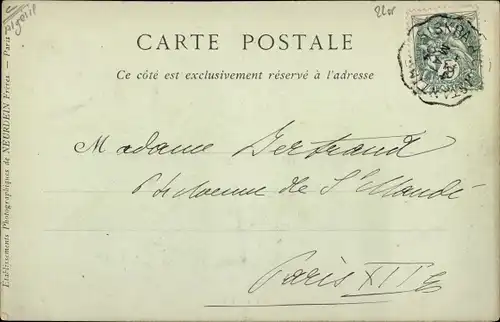 Algérie
CARTE POSTALE
Ce côté est exclusivement réservé à l'adresse
Madame Bertrand
Avenue de St Mandé
Paris XII e
Etablissements Photographiques de NEURDEIN Frères. — Paris